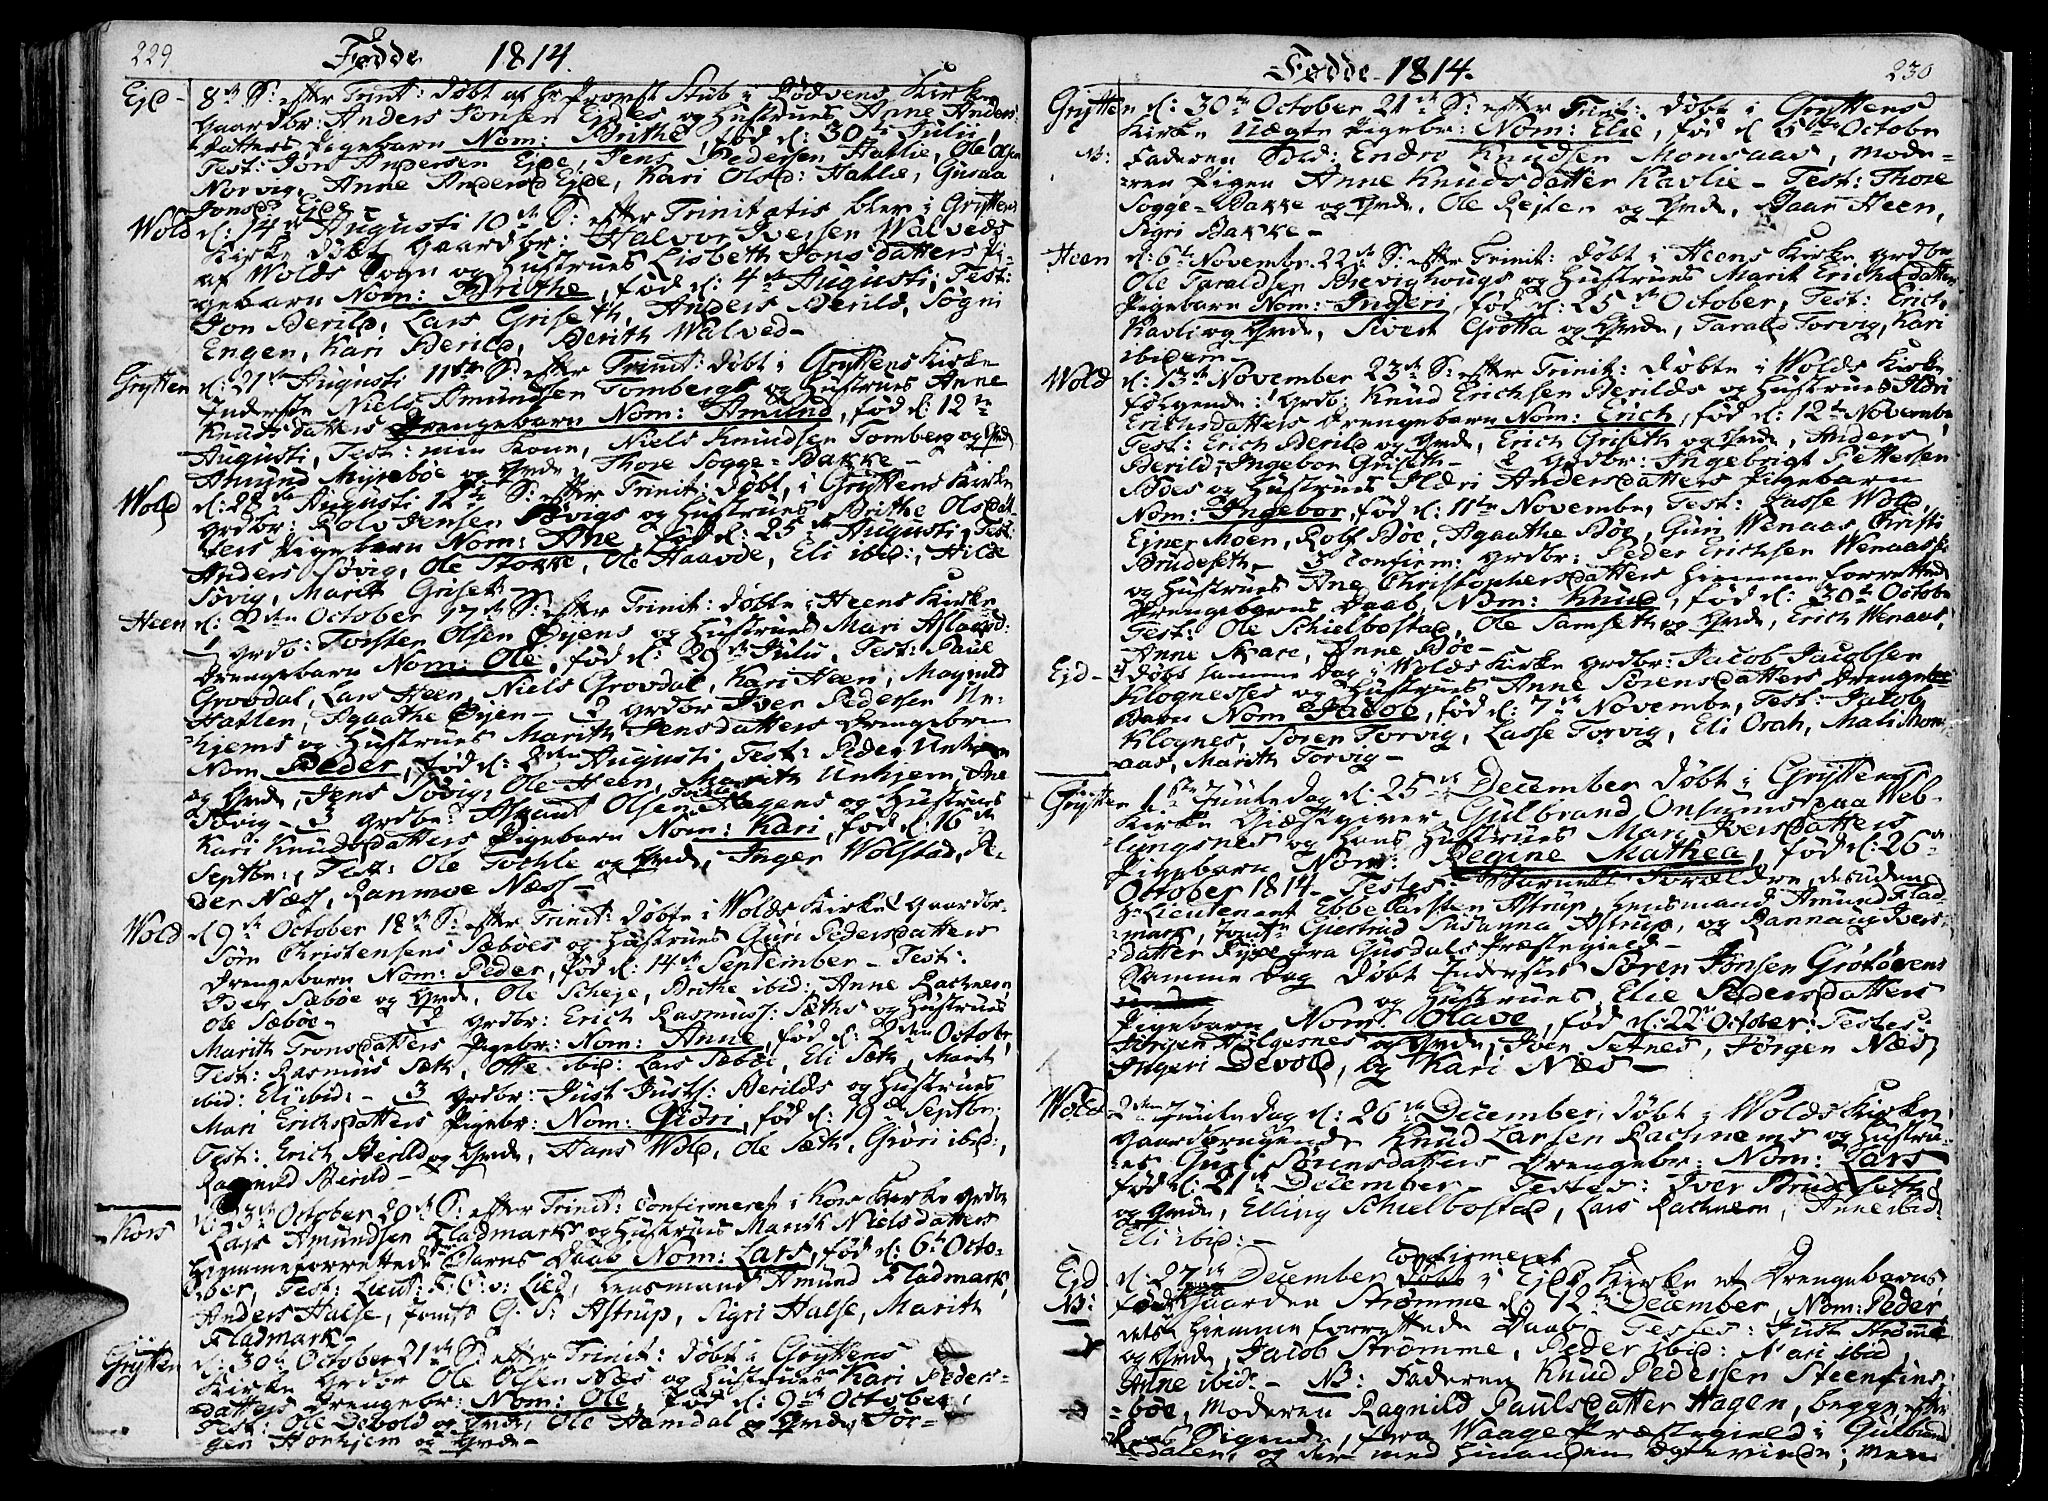 229 Fødde 1814.
Ejd - 8de S: efter Trinit: døbt af Hr Provst Stub i Rødvens Kirke
Gaardbr: Anders Jonsen Ejdes og Hustrues Anne Anders-
datters Pigebarn Nom: Brithe, fød d: 30te Julii,
Test: Jon Andersen Ejde, Jens Pedersen Hatlie, Ole Olsen
Norvig, Anne Andersd Ejde, Kari Olsd: Hatlie, Guraa
Jonsd Ejde -
Wold d: 14de Augusti 10de S: efter Trinitatis blev i Gryttens
Kirke døbt Gaardbr: Halvor Iversen Walveds
af Wolds Sogn og Hustrues Lisbeth Jonsdatters Pi-
gebarn Nom: Brithe, fød d: 4de Augusti, Test:
Jon Berild, Lars Griseth, Anders Berild, Sogni
Engen, Kari Berild, Berith Walved -
Grytten d: 21de Augusti 11te S: efter Trinit: døbt i Gryttens Kirke
Inderste Niels Amundsen Tombergs og Hustrues Anne
Knudsdatters Drengebarn Nom: Amund, fød d: 12te
Augusti, Test: min Kone, Niels Knudsen Tomberg og Qvde
Amund Myrebøe og Qvde, Thore Sogge-Bakke -
Wold d: 28de Augusti 12te S: efter Trinit: døbt i Gryttens Kirke
Grdbr: Rolv Jensen Søvigs og Hustrues Brithe Olsdat-
ters Pigebarn Nom: Ane, fød d: 25de Augusti, Test:
Anders Søvig, Ole Stokke, Ole Haavde, Eli ibid:, Hilde
Søvig, Marit Griset -
Heen d: 2den October 17de S: efter Trinit: døbte i Heens Kirke
1 Grdbr: Torsten Olsen Øyens og Hustrues Mari Aslaksd:
Drengebarn Nom: Ole, fød d: 29de Julii, Test: Paul
Grovdal, Lars Heen, Niels Grovdal, Kari Heen, Magnild
Hatlen, Agaathe Øyen - 2 Grdbr Iver Pedersen Un-
hjems og Hustrues Marith Jensdatters Drengebrn
Nom Peder, fød d: 8den Augusti Test: Peder Unhjem
og Qvde, Jens Søvig, Ole Heen, Marith Unhjem, Ane
Søvig - 3 Grdbr: Askaut Olsen Hagens og Hustrues
Kari Knudsdatters Pigebarn Nom: Kari, fød d: 16de
Septbr:, Test: Ole Tokle og Qvde, Inger Wolstad, Pe-
der Næss, Ranmoe Næss -
Wold d 9de October 18de S: efter Trinit: døbte i Wolds Kirke 1 Gaardbr-
Søren Christensens Sæbøes og Hustrues Guri Pedersdatters
Drengebarn Nom: Peder, fød d: 14de September - Test:
Peder Sæbøe og Qvde, Ole Scheje, Brithe ibid:, Anne Rachnem
Ole Sæbøe - 2 Grdbr: Erich Rasmuss: Sæths og Hustrues
Marith Tronsdatters Pigebr: Nom: Anne, fød d: 2den October,
Test: Rasmus Sæth, Otte ibid: Lars Sæbøe, Eli Sæth, Marit
ibid: Eli ibid: - 3 Grdbr: Just Justs: Berilds og Hustrues
Mari Erichsdatters Pigebr: Nom: Giøri, fød d: 19de Septbr;
Test: Erich Berild og Qvde, Hans Wold, Ole Sæth, Giøri ibid:,
Ragnild Berild -
Kors d: 23de October 20de S: efter Trinit: Confirmeret i Kors Kirke Grdbr
Lars Amundsen Fladmarks og Hustrues Marith Nielsdatters
hiemmeforrettede Barns Daab Nom: Lars, fød d: 6te Octo-
ber, Test: Lieut: F. C. v: Lied, Lensmand Amund Fladmark,
Anders Halse, Jomfr G. S: Astrup, Sigri Halse, Marith
Fladmark -
Grytten d: 30te October 21de S: efter Trinit: døbt i Gryttens
Kirke Grdbr Ole Olsen Næs og Hustrues Kari Peders-
datters Drengebr: Nom: Ole, fød d: 9de October,
Test: Ole Devold og Qvde, Ole Hamdal og Qvde, Jør-
gen Horhjem og Qvde -
Fødde 1814. 230
Grytten d: 30te October 21de S: efter Trinit: døbt i Gryttens
Kirke Uægte Pigebr: Nom: Elie, fød d. 5te Octobr
N: Faderen Sold: Endre Knudsen Monsaas, Mode-
ren Pigen Anne Knudsdatter Kavlie - Test: Thore
Sogge-Bakke og Qvde, Ole Rejten og Qvde, Baar Heen,
Sigri Bakke -
Heen d: 6te Novembr 22de S: efter Trinit: døbt i Heens Kirke Grdbr
Ole Taraldsen Brevighougs og Hustrues Marit Erichsdatters
Pigebarn Nom: Ingeri, fød d: 25de October, Test: Erich
Kavli og Qvde, Sivert Grotta og Qvde, Tarald Torvig, Kari
ibidem -
Wold d: 13de November 23de S: efter Trinit: døbte i Wolds Kirke
følgende: 1 Grdbr: Knud Erichsen Berilds og Hustrues Ildri
Erichsdatters Drengebarn Nom: Erich, fød d: 12te November
Test: Erich Berild og Qvde, Erich Griseth og Qvde, Anders
Berild, Ingebor Griseth - 2 Grdbr: Ingebrigt Pettersen
Bøes og Hustrues Ildri Andersdatters Pigebarn
Nom: Ingebor, fød d: 11te Novembr, Test: Lasse Wold,
Ejner Moen, Rolf Bøe, Agaathe Bøe, Guri Wenaas, Christi
Brudeseth - 3 Confirm: Grdbr: Peder Erichsen Wenaass
og Hustrues Ane Christophersdatters hiemmeforrettede
Drengebarns Daab, Nom: Knud, fød d: 30te Octobr
Test: Ole Schielbostad, Ole Samseth og Qvde, Erich Wenaas,
Anne Mare, Anne Bøe -
Ejd - døbt samme Dag i Wolds Kirke Grdbr: Jacob Jacobsen
Klognesses og Hustrues Anne Sørensdatters Drenge-
Barn Nom Jacob, fød d: 7de Novembr, Test: Jacob
Klognes, Søren Torvig, Lasse Torvig, Eli Orah, Mali Mons-
aas, Marith Torvig -
Grytten 1ste Juule Dag d: 25de December døbt i Gryttens
Kirke Giæstgiver Gulbrand Onsums paa Web-
lungsnes og hans Hustrues Mari Iversdatters
Pigebarn Nom: Regine Mathea, fød d: 26de
October 1814 - Testes: Barnets Forældre, desuden
Hr Lieutenent Ebbe Carsten Astrup, Lensmand Amund Flad-
mark, Jomfr Giertrud Susanna Astrup, og Rannaug Ivers-
datter Fyxe fra Gusdals Præstegield -
Samme Dag døbt Inderster Søren Jonsen Grøtørens
og Hustrues Elie Pedersdatters
Pigebarn Nom: Olave, fød d: 22de October: Testes:
Jørgen Holgesnes og Qvde, Iver Setnes, Jørgen Næs,
Ingeri Devold, og Kari Næs -
Wold 2den Juule Dag d: 26de December, døbt i Wolds Kirke,
Gaardbrugende Knud Larsen Rachnems og Hustru-
es Guri Sørensdatters Drengebr: Nom: Lars
fød d: 21de December - Testes: Iver Brudeseth
og Qvde, Elling Schielbostad, Lars Rachnem, Anne ibid:
Eli ibid: -
Confirmeret
Ejd d: 27de December døbt i Ejds Kirke et Drengebarns
N: fød paa Gaarden Strømme d: 12te December, Nom: Peder,
dets hiemmeforrettede Daab, Testes: Just Strømme
og Qvde, Jacob Strømme, Peder ibid: Mari ibid,
Anne ibid: - N: Faderen Knud Pedersen Steenfins-
bøe, Moderen Ragnild Paulsdatter Hagen, begge efter
Sigende, fra Waage Præstegield i Gulbrands-
dalen, og der med hinanden Ægteviede; men